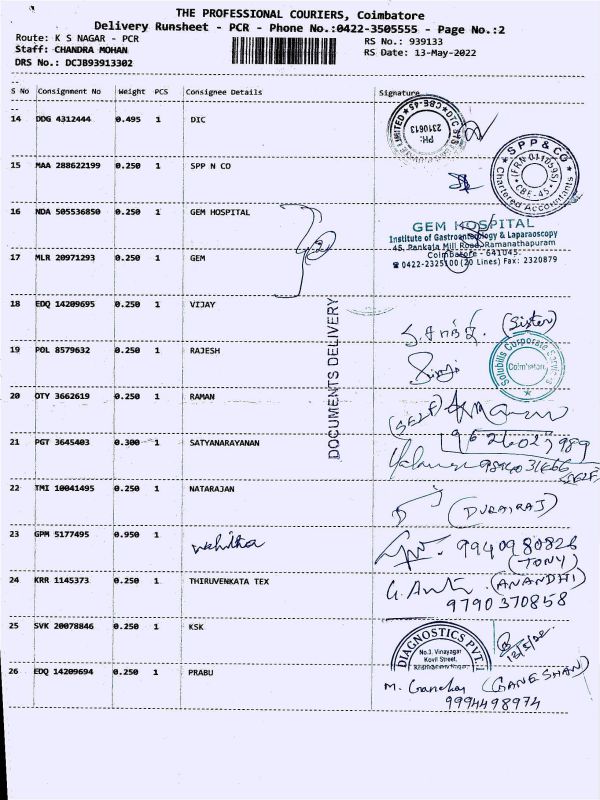 THE PROFESSIONAL COURIERS, Coimbatore
Delivery Runsheet - PCR - Phone No.:0422-3505555 - Page No.:2
Route: K S NAGAR - PCR
RS No.: 939133
Staff: CHANDRA MOHAN
RS Date: 13-May-2022
DRS No.: DCJB93913302
S No Consignment No Weight PCS Consignee Details Signature
14 DDG 4312444 0.495 1 DIC
PH: 2310613
15 MAA 288622199 0.250 1 SPP N CO
SPP & CO
Chartered Accountants
CBE-45
16 NDA 505536850 0.250 1 GEM HOSPITAL
GEM HOSPITAL
Institute of Gastroenterology & Laparaoscopy
45, Pankaja Mill Road, Ramanathapuram
Coimbatore - 641045.
☎ 0422-2325100 (20 Lines) Fax: 2320879
17 MLR 20971293 0.250 1 GEM
DOCUMENTS DELIVERY
18 EDQ 14209695 0.250 1 VIJAY
(Sister)
19 POL 8579632 0.250 1 RAJESH
Solubilis Corporate Services
Coimbatore
20 OTY 3662619 0.250 1 RAMAN
(SELF)
9626027989
21 PGT 3645403 0.300 1 SATYANARAYANAN
SELF
22 TMI 10041495 0.250 1 NATARAJAN
(DURAIRAJ)
23 GPM 5177495 0.950 1
9940980826
(TONY)
24 KRR 1145373 0.250 1 THIRUVENKATA TEX
(ANANDHI)
9790370858
25 SVK 20078846 0.250 1 KSK
DIAGNOSTICS PVT.
No.3, Vinayagar
Kovil Street,
26 EDQ 14209694 0.250 1 PRABU
(GANESHAN)
9994498974